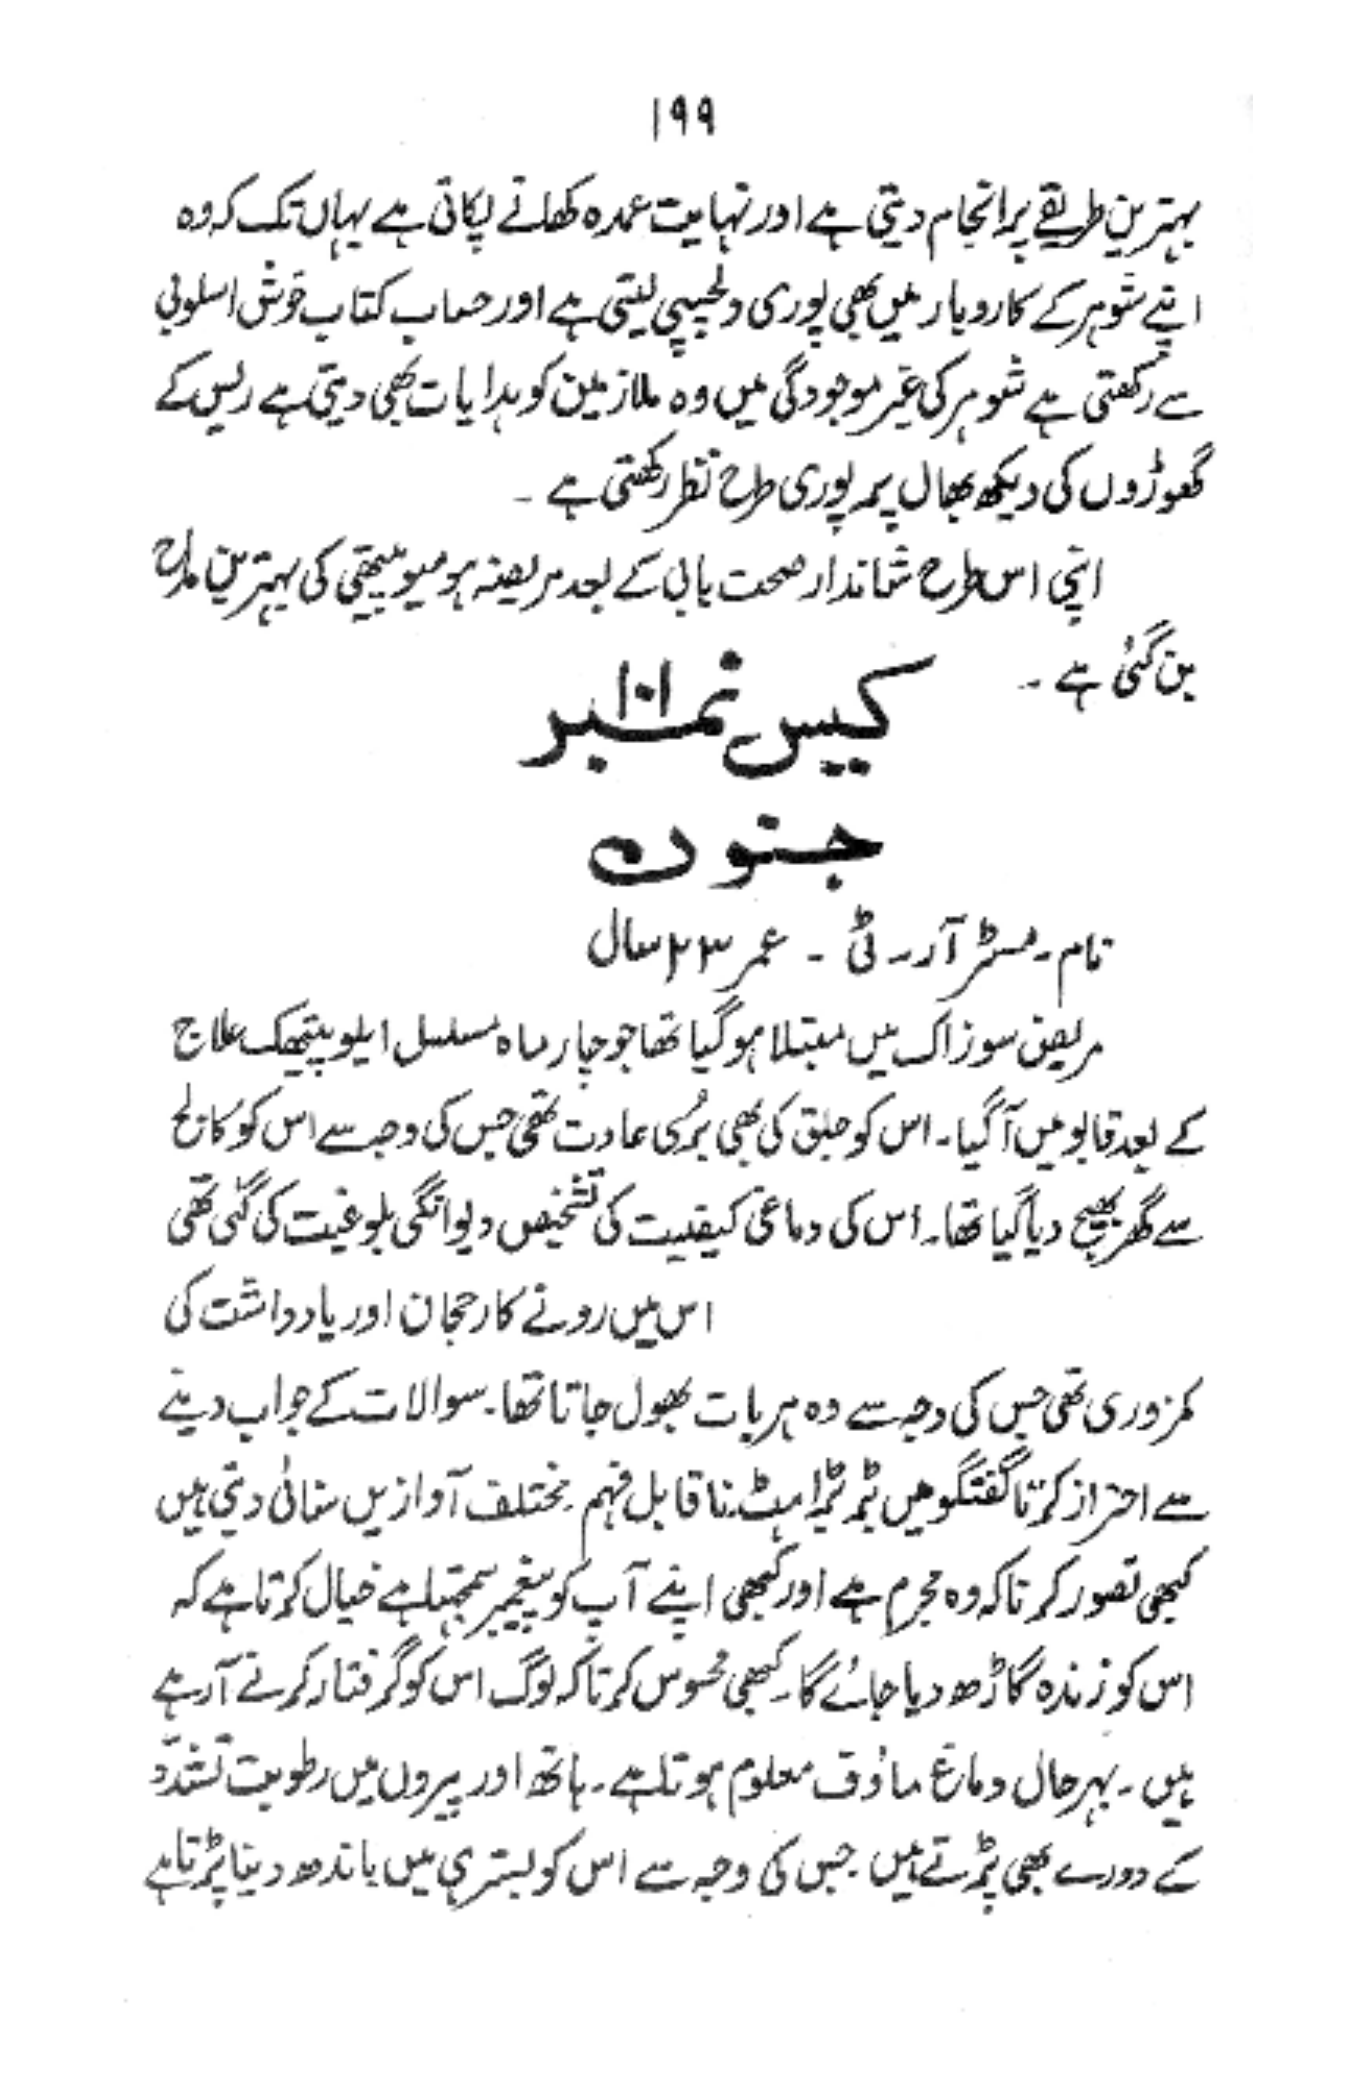 ۱۹۹
بہترین طریقے پر انجام دیتی ہے اور نہایت عمدہ کھانے پکاتی ہے یہاں تک کہ وہ
اپنے شوہر کے کاروبار میں بھی پوری دلچسپی لیتی ہے اور حساب کتاب خوش اسلوبی
سے رکھتی ہے شوہر کی غیر موجودگی میں وہ ملازمین کو ہدایات بھی دیتی ہے ریس کے
گھوڑوں کی دیکھ بھال پر پوری طرح نظر رکھتی ہے ۔
اپنی اس طرح شاندار صحت یابی کے بعد مریضہ ہومیوپیتھی کی بہترین مداح
بن گئی ہے ۔
کیس نمبر ۱۰۱
جنون
نام ۔ مسٹر آر ۔ ٹی ۔ عمر ۲۳ سال
مریض سوزاک میں مبتلا ہو گیا تھا جو چار ماہ مسلسل ایلوپیتھک علاج
کے بعد قابو میں آ گیا ۔ اس کو جلق کی بھی بُری عادت تھی جس کی وجہ سے اس کو کالج
سے گھر بھیج دیا گیا تھا ۔ اس کی دماغی کیفیت کی تشخیص دیوانگی بلوغیت کی گئی تھی
اس میں رونے کا رحجان اور یادداشت کی
کمزوری تھی جس کی وجہ سے وہ ہر بات بھول جاتا تھا ۔ سوالات کے جواب دینے
سے احتراز کرتا گفتگو میں بڑبڑاہٹ ناقابل فہم ۔ مختلف آوازیں سنائی دیتی ہیں
کبھی تصور کرتا کہ وہ مجرم ہے اور کبھی اپنے آپ کو پیغمبر سمجھتا ہے خیال کرتا ہے کہ
اس کو زندہ گاڑھ دیا جائے گا ۔ کبھی محسوس کرتا کہ لوگ اس کو گرفتار کرنے آ رہے
ہیں ۔ بہرحال دماغ ماؤف معلوم ہوتا ہے ۔ ہاتھ اور پیروں میں رطوبت تشدّد
کے دورے بھی پڑتے ہیں جس کی وجہ سے اس کو بستر ہی میں باندھ دینا پڑتا ہے